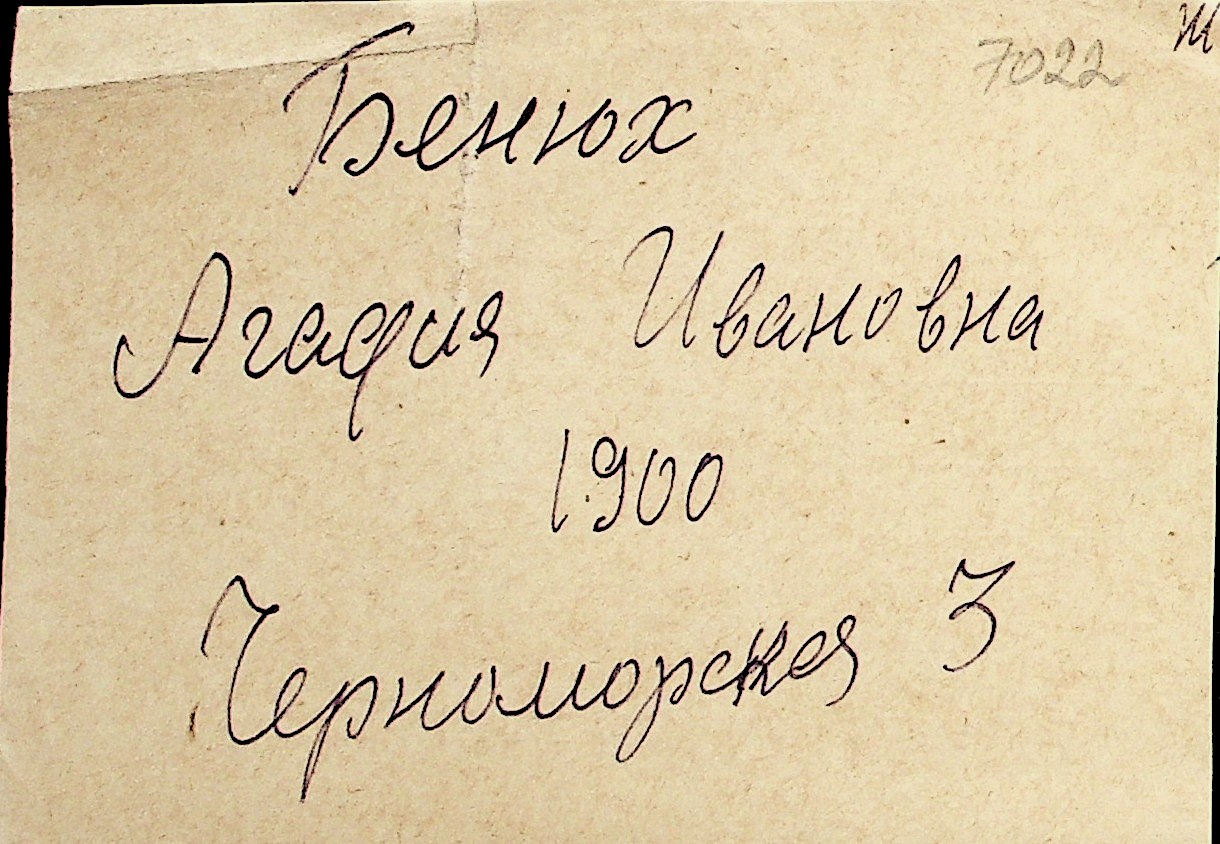 7022
Бенюх
Агафия Ивановна
1900
Черноморская 3